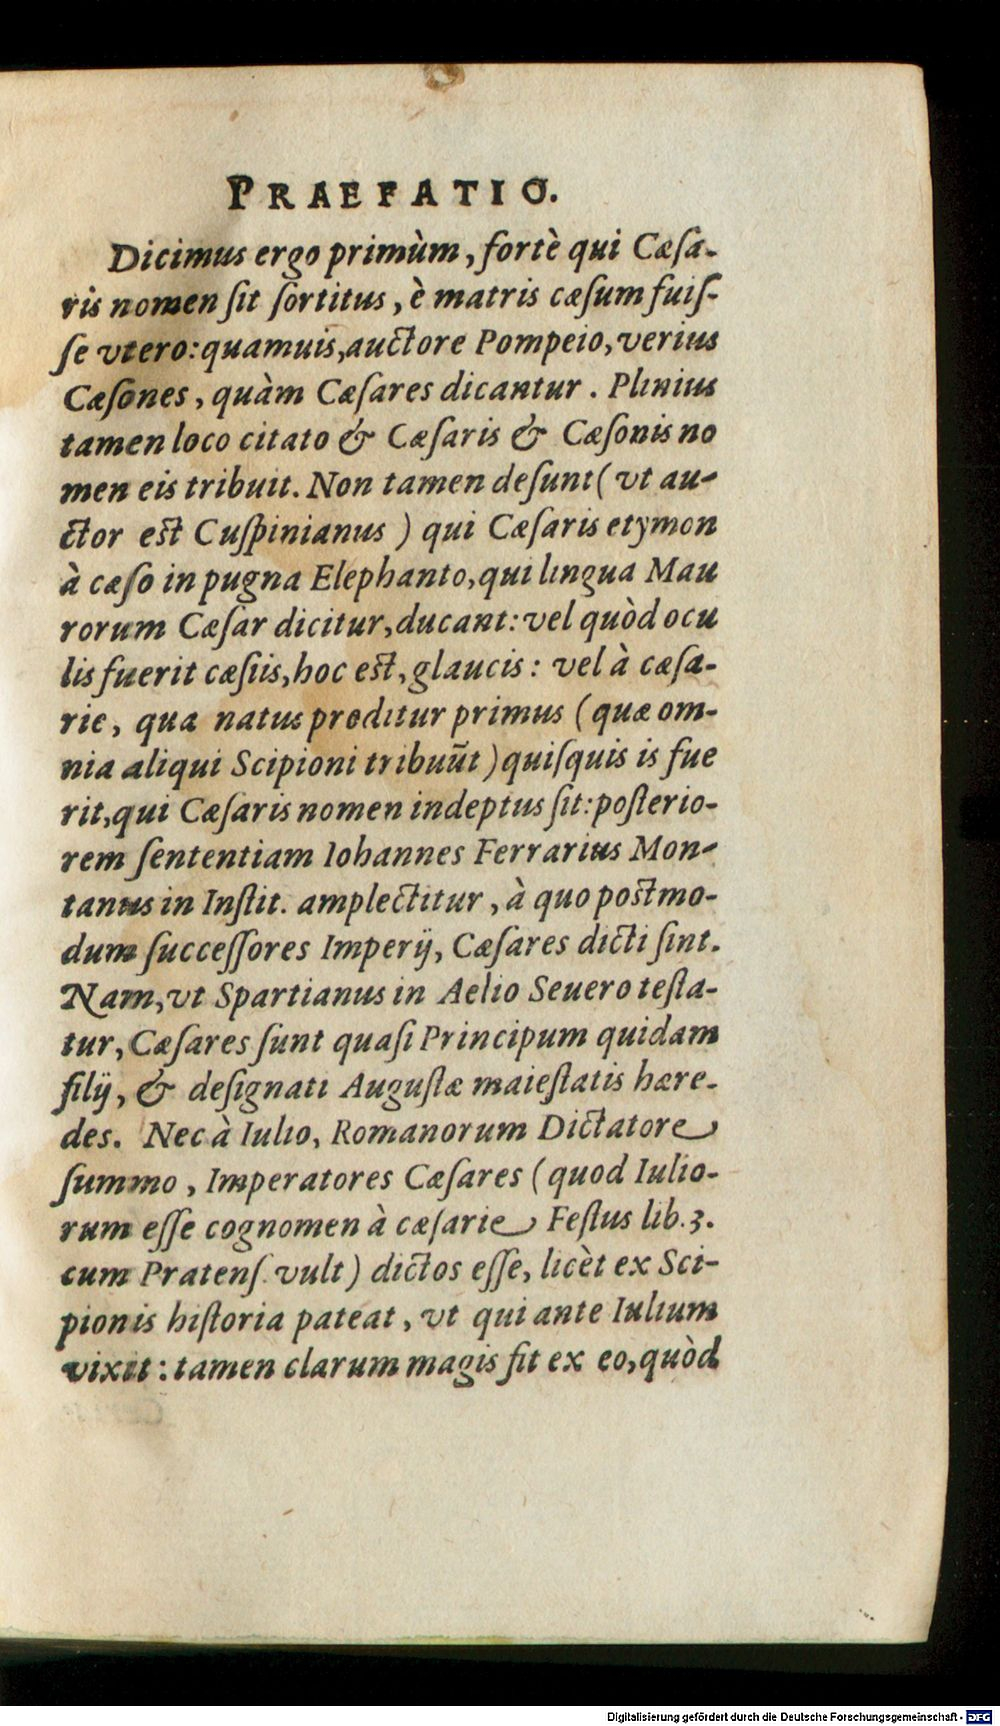 PRAEFATIO.
Dicimus ergo primùm, fortè qui Cæſa-
ris nomen ſit ſortitus, è matris cæſum fuiſ-
ſe vtero: quamuis, auctore Pompeio, verius
Cæſones, quàm Cæſares dicantur. Plinius
tamen loco citato & Cæſaris & Cæſonis no
men eis tribuit. Non tamen deſunt (vt au-
ctor est Cuſpinianus) qui Cæſaris etymon
à cæſo in pugna Elephanto, qui lingua Mau
rorum Cæſar dicitur, ducant: vel quòd ocu
lis fuerit cæſiis, hoc est, glaucis: vel à cæſa-
rie, qua natus proditur primus (quæ om-
nia aliqui Scipioni tribuūt) quiſquis is fue
rit, qui Cæſaris nomen indeptus ſit: poſterio-
rem ſententiam Iohannes Ferrarius Mon-
tanus in Inſtit. amplectitur, à quo postmo-
dum ſucceſſores Imperij, Cæſares dicti ſint.
Nam, vt Spartianus in Aelio Seuero teſta-
tur, Cæſares ſunt quaſi Principum quidam
filij, & deſignati Auguſtæ maieſtatis hære-
des. Nec à Iulio, Romanorum Dictatore
ſummo, Imperatores Cæſares (quod Iulio-
rum eſſe cognomen à cæſarie Feſtus lib. 3.
cum Pratenſ. vult) dictos eſſe, licèt ex Sci-
pionis hiſtoria pateat, vt qui ante Iulium
vixit: tamen clarum magis fit ex eo, quòd
Digitalisierung gefördert durch die Deutsche Forschungsgemeinschaft - DFG